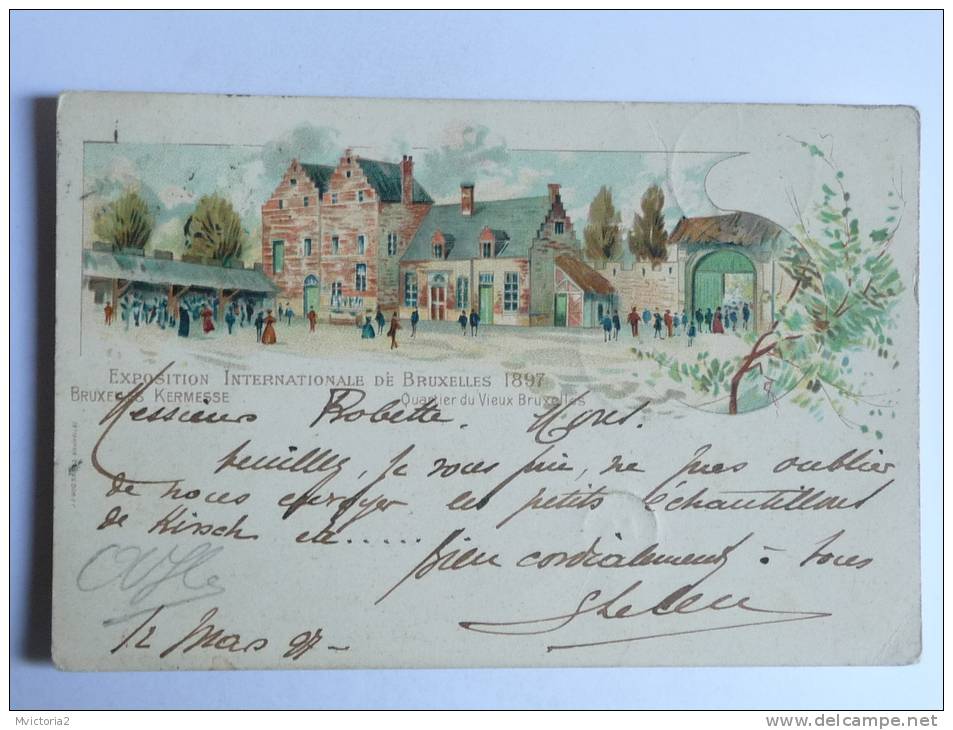 EXPOSITION INTERNATIONALE DE BRUXELLES 1897
BRUXELLES KERMESSE Quartier du Vieux Bruxelles
Messieurs Robette.
Veuillez, je vous prie, ne pas oublier
de nous envoyer les petits échantillons
de Kirsch etc.....
bien cordialement à tous
12 Mars 97-
Mvictoria2
www.delcampe.net